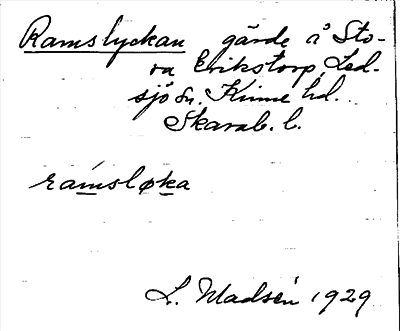 Ramslyckan gärde å Sto-
ra Erikstorp, Led-
sjö sn. Kinne hd.
Skarab. l.
ramsløka
L. Madsén 1929